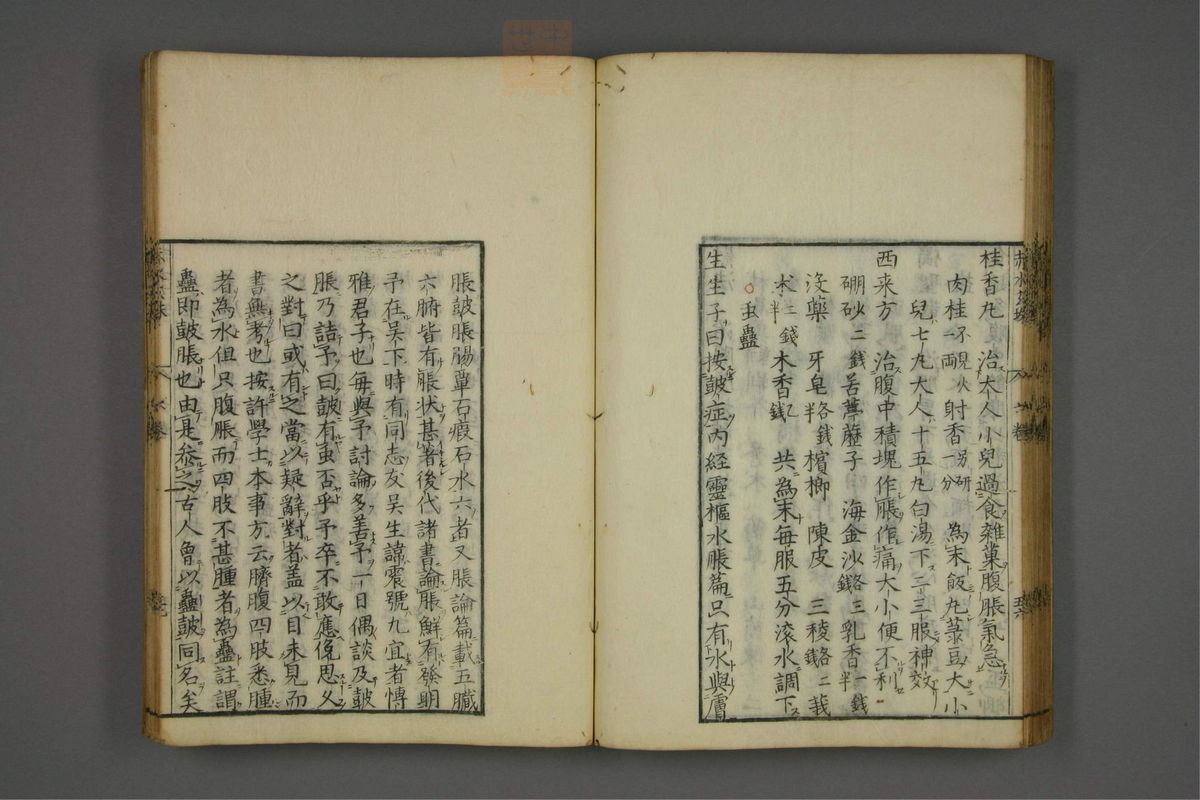 桂香丸 治大人小兒過食雜菓腹脹氣急
肉桂不見火一兩 射香另研一分 為末飯丸菉豆大小
兒七丸大人十五丸白湯下二三服神效
西來方 治腹中積塊作脹作痛大小便不利
硼砂二錢 苦葶藶子 海金沙各三錢 乳香一錢半
沒藥 牙皂各錢半 檳榔 陳皮 三稜各二錢 莪
朮二錢半 木香一錢 共為末每服五分滾水調下
虫蠱
生生子曰按皷症內経靈樞水脹篇只有水與膚
脹皷脹腸蕈石瘕石水六者又脹論篇載五臟
六腑皆有脹状甚著後代諸書論脹鮮有發明
予在吳下時有同志友吳生諱震號九宜者博
雅君子也每與予討論多善予一日偶談及皷
脹乃詰予曰皷有虫否乎予卒不敢應俛思久
之對曰或有之當以疑辭對者盖以目未見而
書無考也按許學士本事方云臍腹四肢悉腫
者為水但只腹脹而四肢不甚腫者為蠱註謂
蠱即皷脹也由是叅之古人曾以蠱皷同名矣